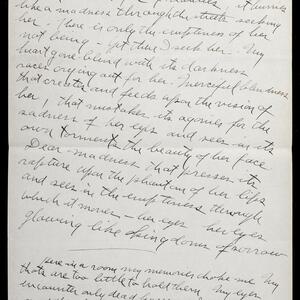 it hurries
like a madness through the streets seeking
her. There is only the emptiness of her
not being — yet I seek her. My
heart gone blind with its darkness
races crying out for her. Merciful blindness
that creates and feeds upon the vision of
her, that mistakes its agonies for the
sadness of her eyes and sees in its
own torments the beauty of her face
Dear madness that presses its
rapture upon the phantom of her lips
and sees in the emptiness through
which it moves — her eyes her eyes
glowing like kingdoms of sorrow
Here in a room my memories choke me. My
thots are too little to hold them. My eyes
encounter only dead